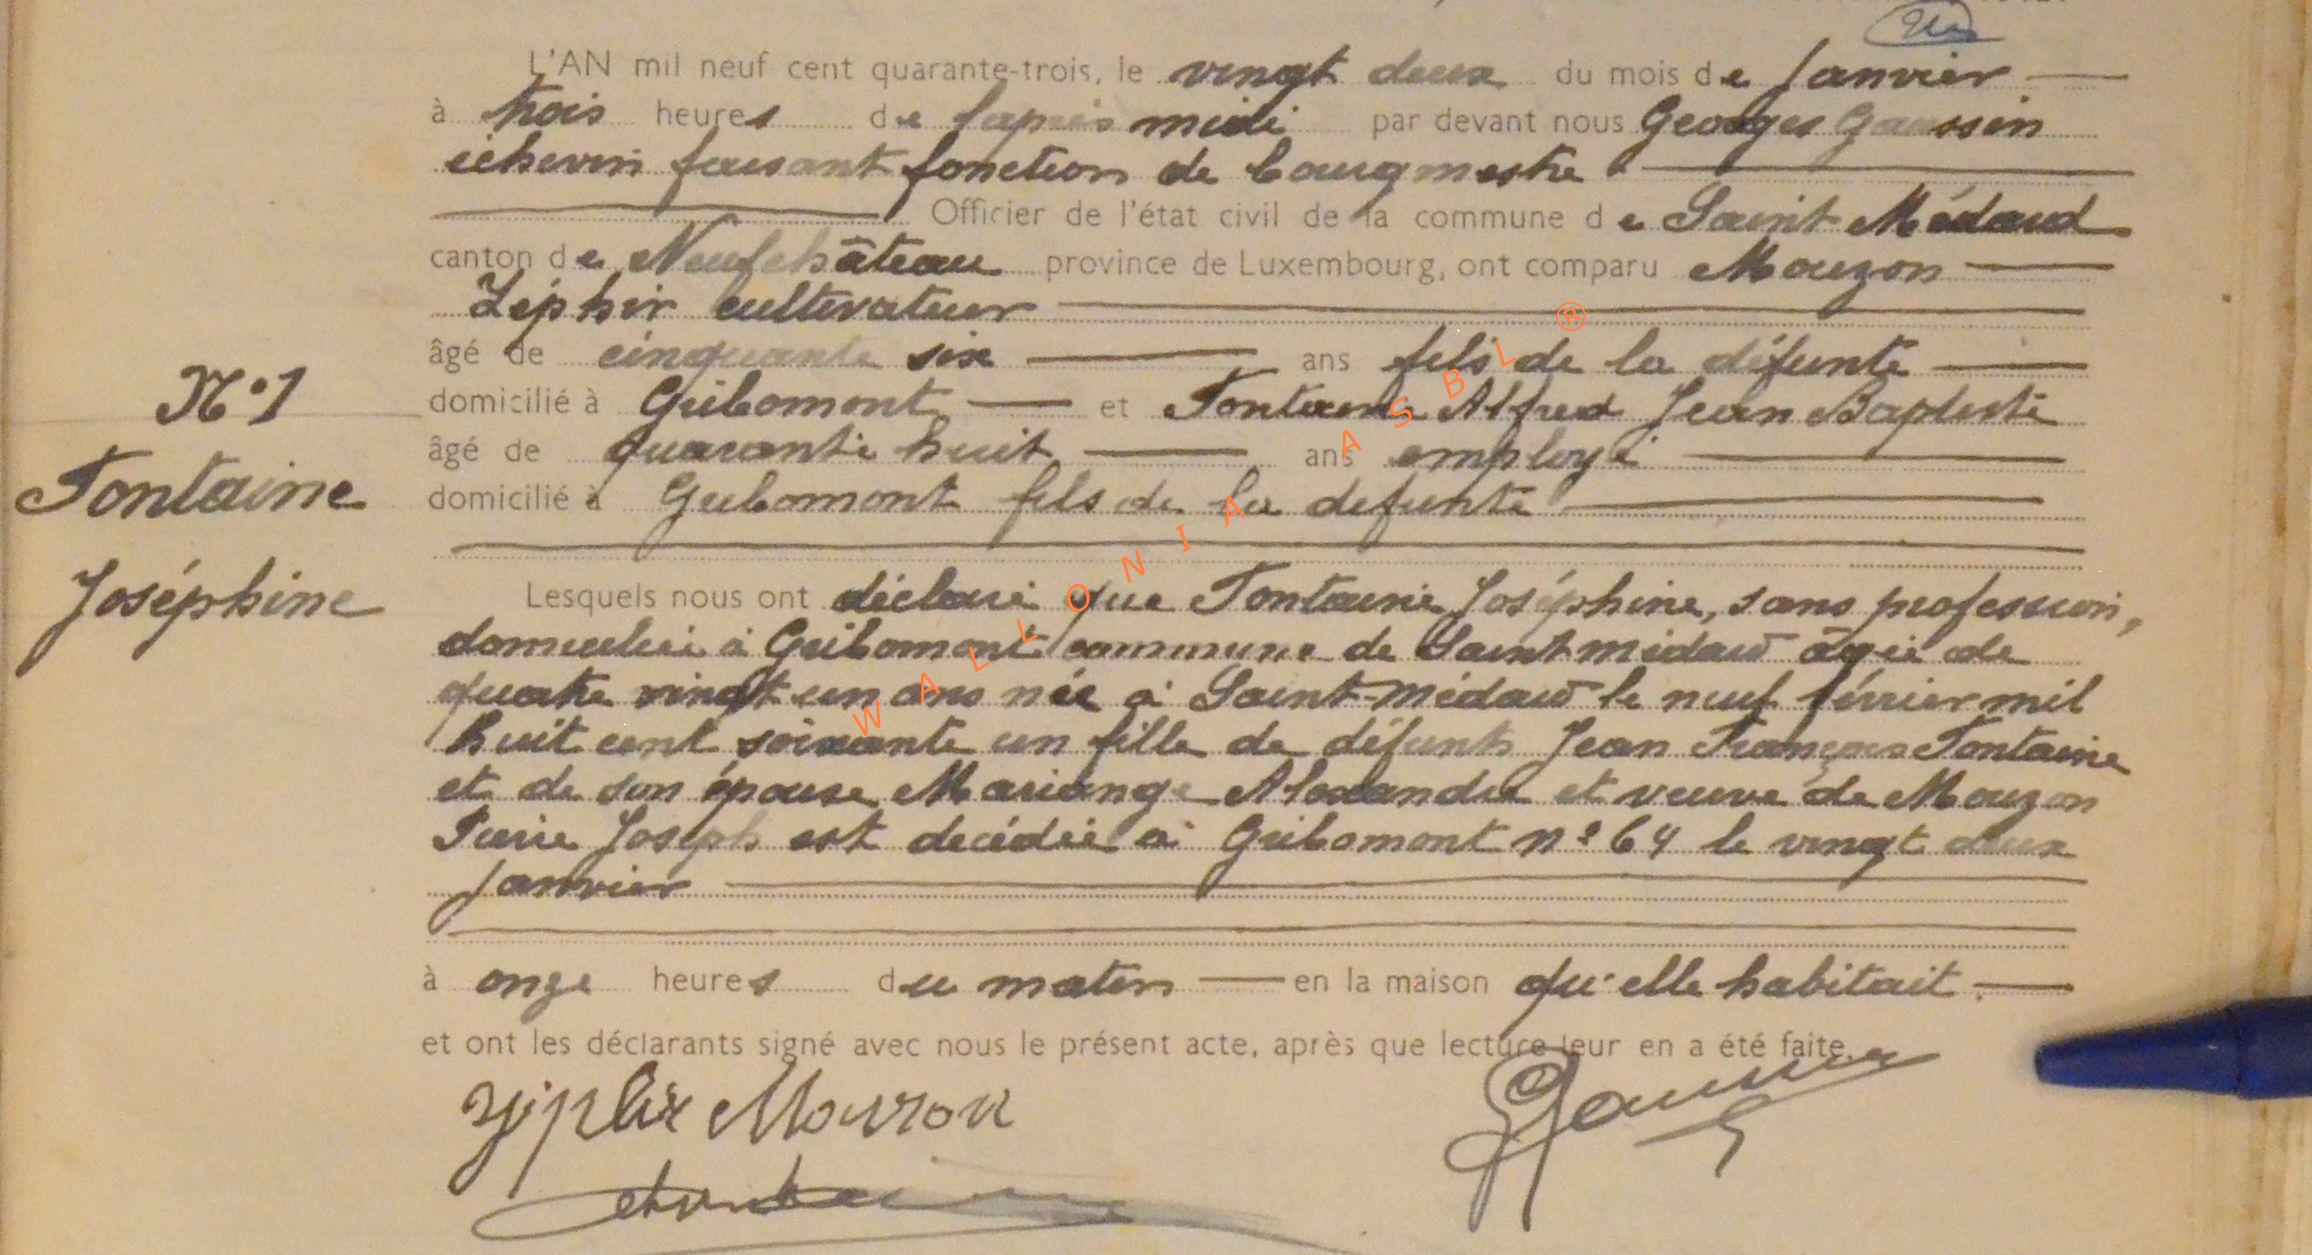 L'AN mil neuf cent quarante-trois, le vingt deux du mois de Janvier
à trois heures de l'après midi par devant nous Georges Gaussin
échevin faisant fonction de bourgmestre
Officier de l'état civil de la commune de Saint Médard
canton de Neufchâteau province de Luxembourg, ont comparu Mouzon
Zéphir cultivateur
âgé de cinquante six ans fils de la défunte
N° 1
domicilié à Gribomont et Fontaine Alfred Jean Baptiste
âgé de quarante huit ans employé
Fontaine
domicilié à Gribomont fils de la defunte
Joséphine
Lesquels nous ont déclaré que Fontaine Joséphine, sans profession,
domiciliée à Gribomont commune de Saint médard âgée de
quatre vingt un ans née à Saint-Médard le neuf février mil
huit cent soixante un fille de défunts Jean François Fontaine
et de son épouse Mariange Alexandre et veuve de Mouzon
Pierre Joseph est decédée à Gribomont n° 64 le vingt deux
Janvier
à onze heures du matin en la maison qu'elle habitait.
et ont les déclarants signé avec nous le présent acte, après que lecture leur en a été faite.
Zéphir Mouzon
Gaussin
WALLONIA ASBL ®